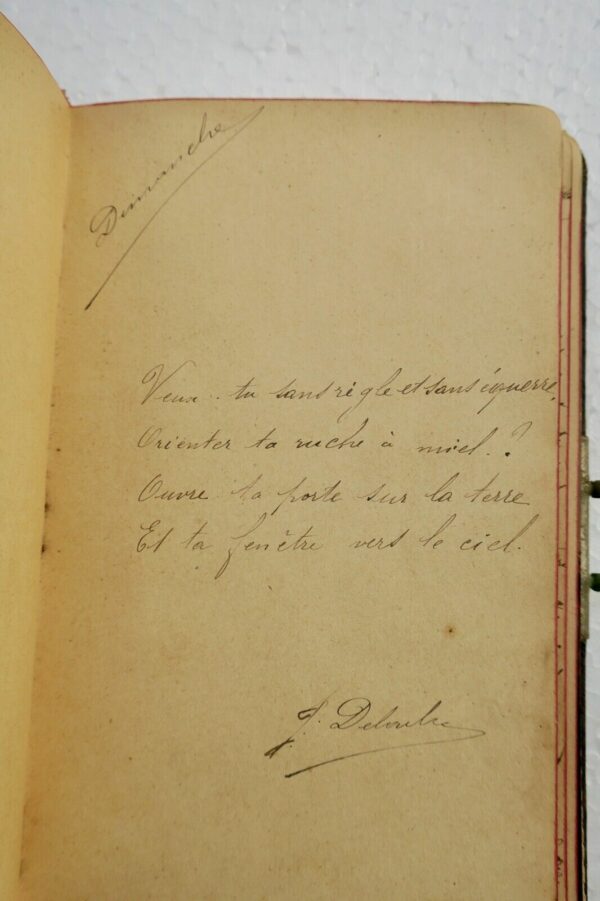 Dimanche
Veux-tu sans règle et sans équerre,
Orienter ta ruche à miel.?
Ouvre ta porte sur la terre
Et ta fenêtre vers le ciel.
J.